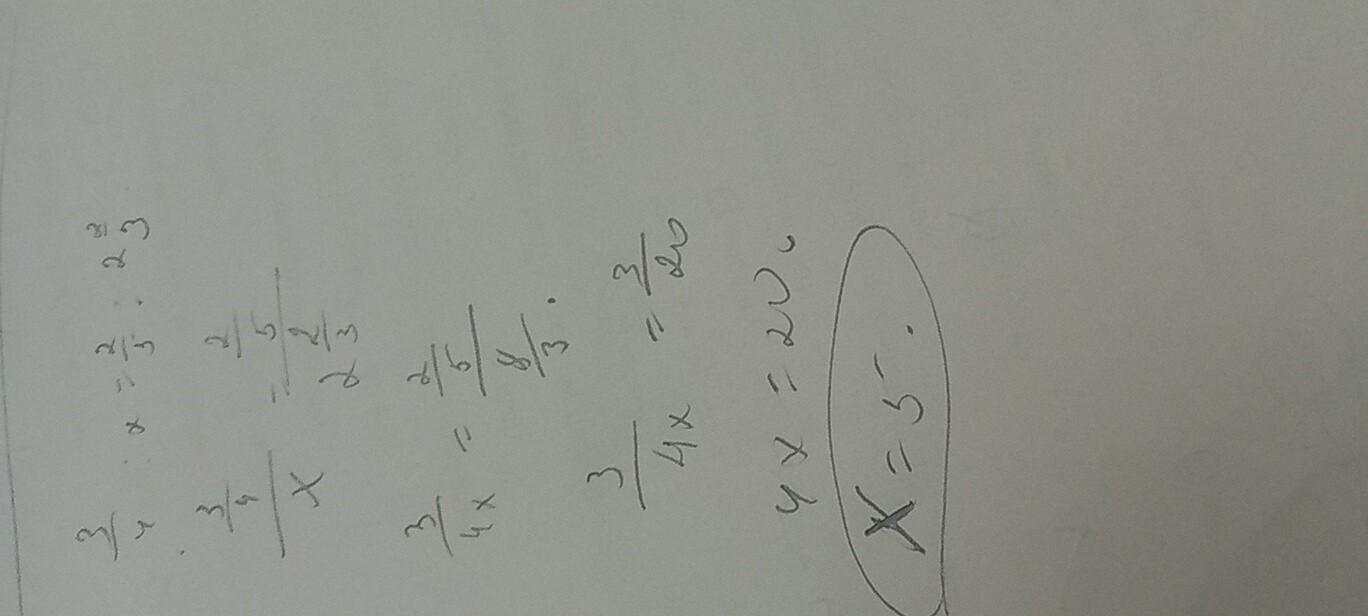 3/4 : x = 2/5 : 2 2/3
3/4 / x = 2/5 / 2 2/3
3/4x = 2/5 / 8/3.
3/4x = 3/20
4x = 20.
x = 5.